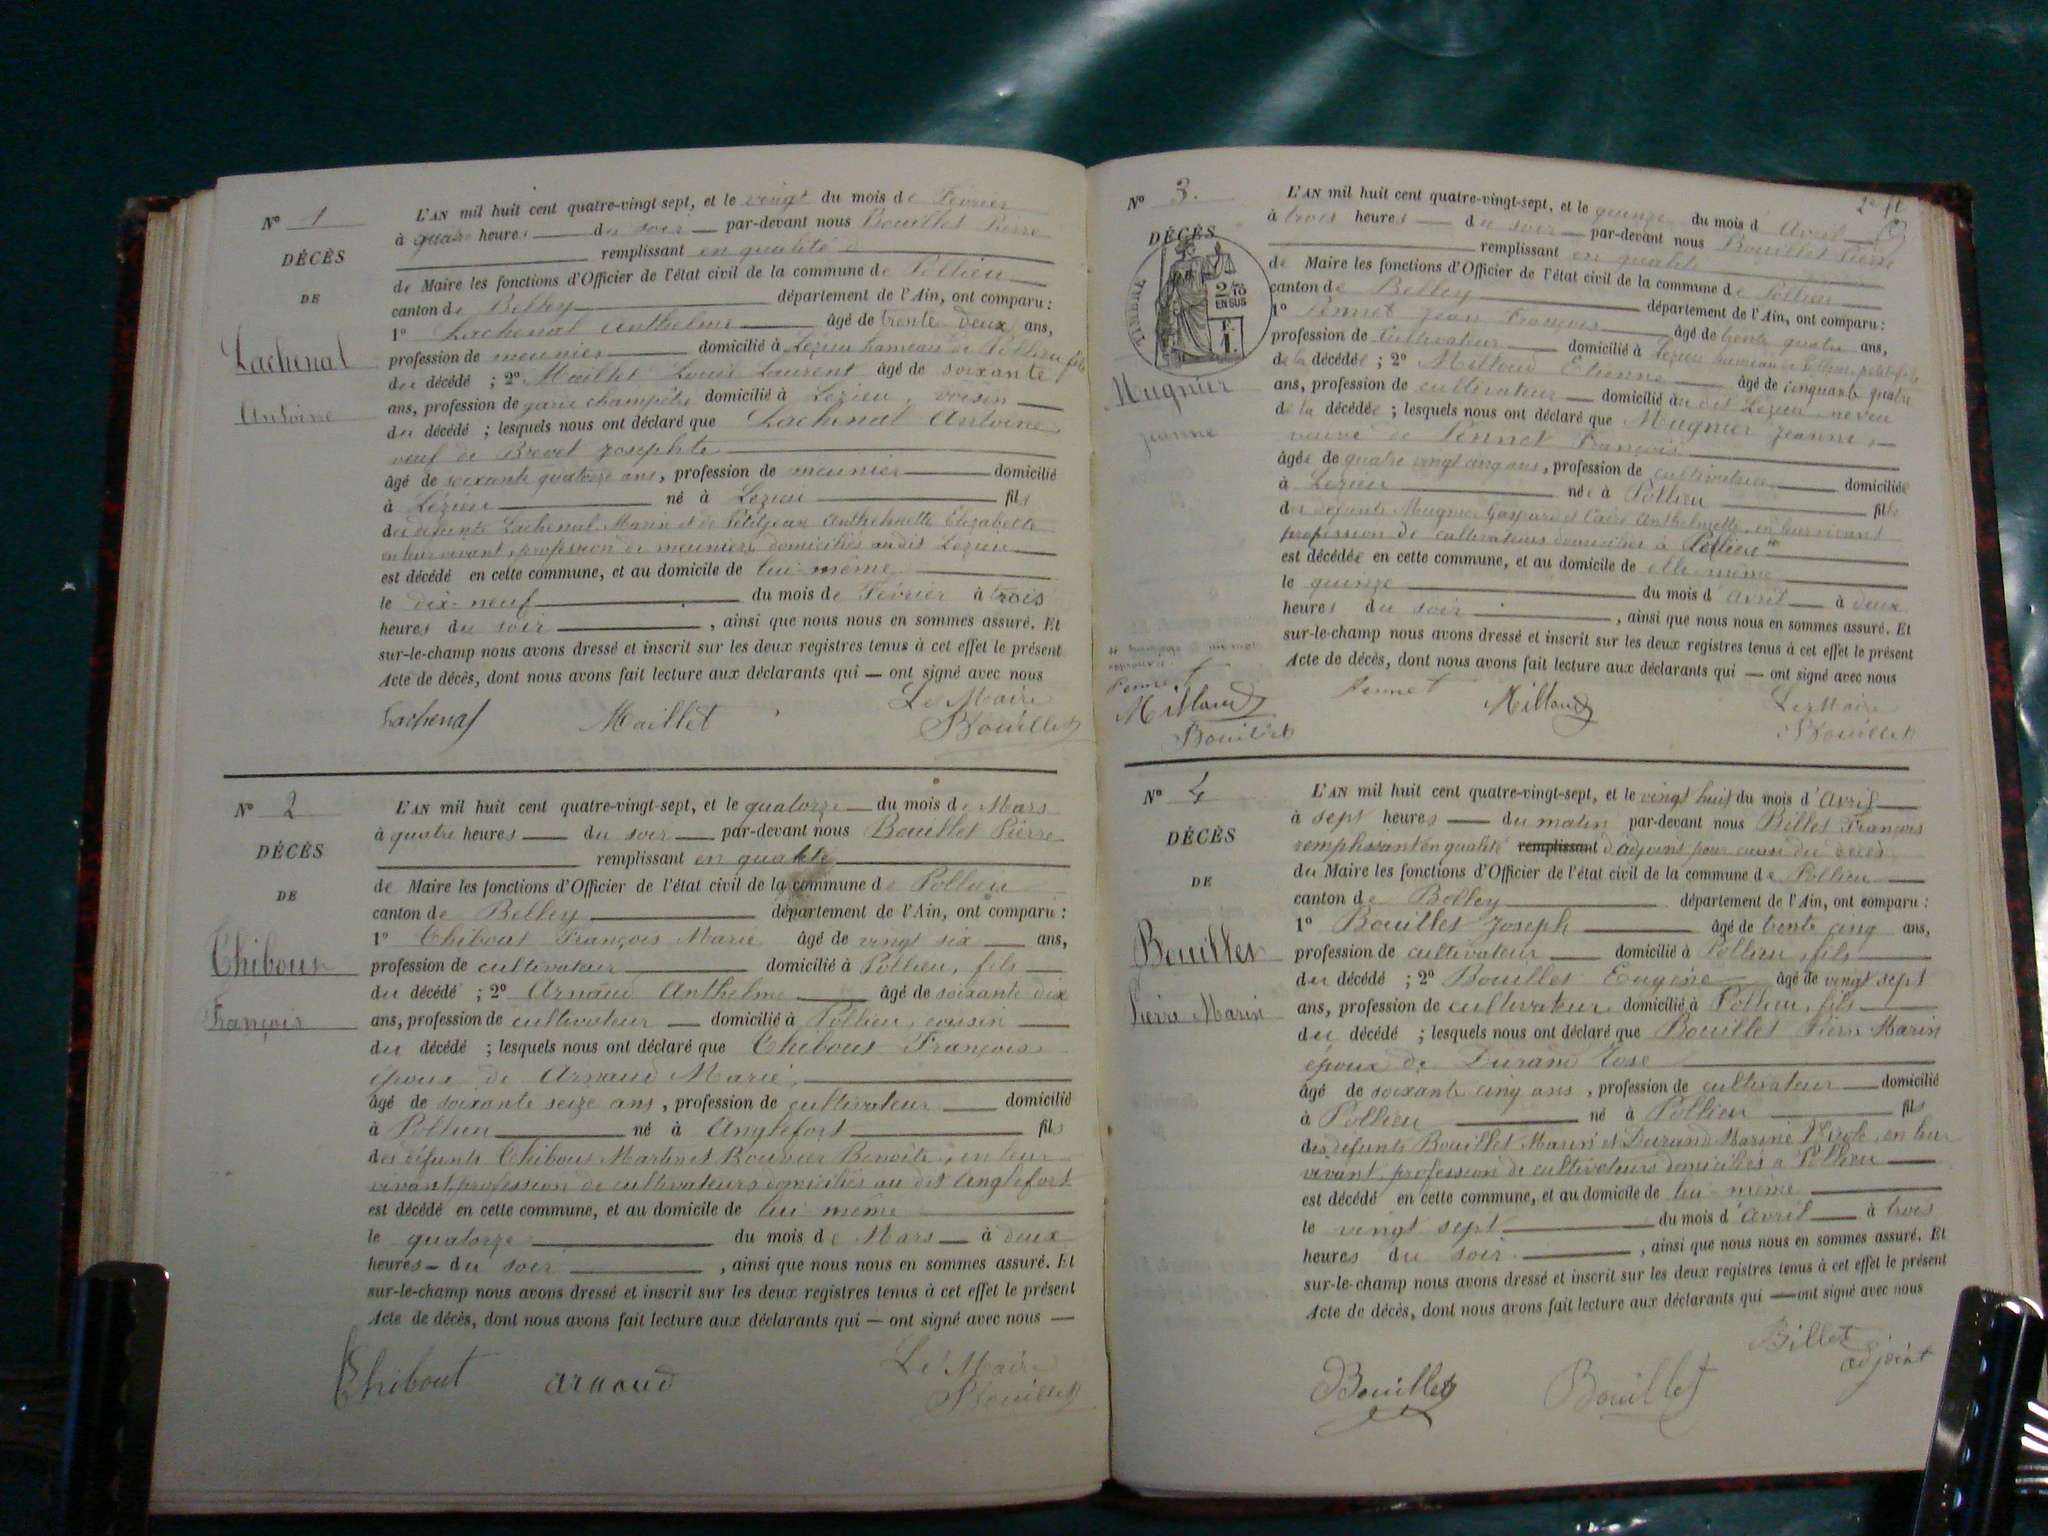 N° 1
DÉCÈS
DE
Lachenal
Antoine
L'AN mil huit cent quatre-vingt-sept, et le vingt du mois de Février
à quatre heures du soir par-devant nous Bouillet Pierre
remplissant en qualité d
de Maire les fonctions d'Officier de l'état civil de la commune de Pollieu
canton de Belley département de l'Ain, ont comparu :
1° Lachenal Anthelme âgé de trente deux ans,
profession de meunier domicilié à Lézieu hameau de Pollieu fils
du décédé ; 2° Maillet Louis Laurent âgé de soixante
ans, profession de garde champêtre domicilié à Lézieu, voisin
du décédé ; lesquels nous ont déclaré que Lachenal Antoine,
veuf de Brevet Josephte
âgé de soixante quatorze ans, profession de meunier domicilié
à Lézieu né à Lezieu fils
des défunts Lachenal Marin et de Petitjean Anthelmette Elizabeth
en leur vivant, profession de meuniers domiciliés au dit Lézieu
est décédé en cette commune, et au domicile de lui même
le dix-neuf du mois de Février à trois
heures du soir , ainsi que nous nous en sommes assuré. Et
sur-le-champ nous avons dressé et inscrit sur les deux registres tenus à cet effet le présent
Acte de décès, dont nous avons fait lecture aux déclarants qui — ont signé avec nous
Lachenal Maillet Le Maire
Bouillet
N° 2
DÉCÈS
DE
Chibout
François
L'AN mil huit cent quatre-vingt-sept, et le quatorze du mois de Mars
à quatre heures du soir par-devant nous Bouillet Pierre
remplissant en qualité
de Maire les fonctions d'Officier de l'état civil de la commune de Pollieu
canton de Belley département de l'Ain, ont comparu :
1° Chibout François Marie âgé de vingt six ans,
profession de cultivateur domicilié à Pollieu, fils
du décédé ; 2° Arnaud Anthelme âgé de soixante dix
ans, profession de cultivateur domicilié à Pollieu, cousin
du décédé ; lesquels nous ont déclaré que Chibout François
époux de Arnaud Marie,
âgé de soixante seize ans, profession de cultivateur domicilié
à Pollieu né à Anglefort fils
des défunts Chibout Martin et Bouvier Benoite, en leur
vivant, profession de cultivateurs domiciliés au dit Anglefort
est décédé en cette commune, et au domicile de lui même
le quatorze du mois de Mars à deux
heures du soir , ainsi que nous nous en sommes assuré. Et
sur-le-champ nous avons dressé et inscrit sur les deux registres tenus à cet effet le présent
Acte de décès, dont nous avons fait lecture aux déclarants qui — ont signé avec nous
Chibout Arnaud Le Maire
Bouillet
2e ft
N° 3.
DÉCÈS
TIMBRE
2/10
EN SUS
F.
1.
Mugnier
Jeanne
L'AN mil huit cent quatre-vingt-sept, et le quinze du mois d'Avril
à trois heures du soir par-devant nous Bouillet Pierre
remplissant en qualité
de Maire les fonctions d'Officier de l'état civil de la commune de Pollieu
canton de Belley département de l'Ain, ont comparu :
1° Pennet Jean François âgé de trente quatre ans,
profession de cultivateur domicilié à Lézieu hameau de Pollieu, petit-fils
de la décédée ; 2° Milloud Etienne âgé de cinquante quatre
ans, profession de cultivateur domicilié au dit Lézieu, neveu
de la décédée ; lesquels nous ont déclaré que Mugnier Jeanne,
veuve de Pennet François
âgée de quatre vingt cinq ans, profession de cultivatrice domiciliée
à Lezieu née à Pollieu fille
des défunts Mugnier Gaspard et Anthelmette, en leur vivant
profession de cultivateurs domiciliés à Pollieu
est décédée en cette commune, et au domicile de elle même
le quinze du mois d'Avril à deux
heures du soir , ainsi que nous nous en sommes assuré. Et
sur-le-champ nous avons dressé et inscrit sur les deux registres tenus à cet effet le présent
Acte de décès, dont nous avons fait lecture aux déclarants qui — ont signé avec nous
Pennet
Milloud
Bouillet
Pennet Milloud Le Maire
Bouillet
N° 4
DÉCÈS
DE
Bouillet
Pierre Marin
L'AN mil huit cent quatre-vingt-sept, et le vingt huit du mois d'Avril
à sept heures du matin par-devant nous Billet François
remplissant en qualité remplissant d'adjoint pour cause du décès
du Maire les fonctions d'Officier de l'état civil de la commune de Pollieu
canton de Belley département de l'Ain, ont comparu :
1° Bouillet Joseph âgé de trente cinq ans,
profession de cultivateur domicilié à Pollieu, fils
du décédé ; 2° Bouillet Eugène âgé de vingt sept
ans, profession de cultivateur domicilié à Pollieu, fils
du décédé ; lesquels nous ont déclaré que Bouillet Pierre Marin
époux de Durand Rose
âgé de soixante cinq ans, profession de cultivateur domicilié
à Pollieu né à Pollieu fils
des défunts Bouillet Marin et Durand Marine Nicole, en leur
vivant, profession de cultivateurs domiciliés à Pollieu
est décédé en cette commune, et au domicile de lui-même
le vingt sept du mois d'Avril à trois
heures du soir , ainsi que nous nous en sommes assuré. Et
sur-le-champ nous avons dressé et inscrit sur les deux registres tenus à cet effet le présent
Acte de décès, dont nous avons fait lecture aux déclarants qui — ont signé avec nous
Bouillet Bouillet Billet
adjoint